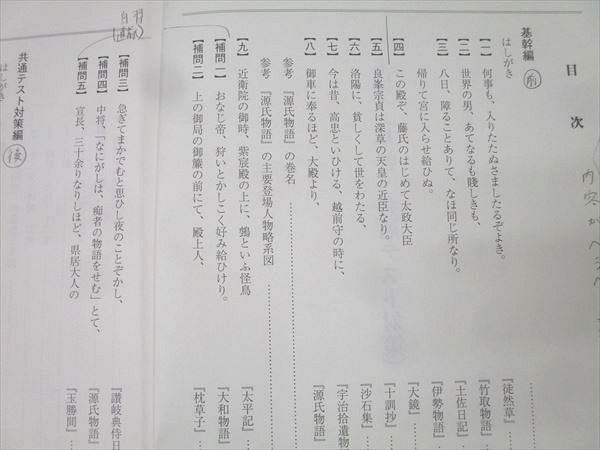 目次
基幹編 前
はしがき
【一】 何事も、入りたたぬさましたるぞよき。 『徒然草』
【二】 世界の男、あてなるも賤しきも、 『竹取物語』
【三】 八日、障ることありて、なほ同じ所なり。 『土佐日記』
帰りて宮に入らせ給ひぬ。 『伊勢物語』
【四】 この殿ぞ、藤氏のはじめて太政大臣 『大鏡』
【五】 良峯宗貞は深草の天皇の近臣なり。 『十訓抄』
【六】 洛陽に、貧しくして世をわたる、 『沙石集』
【七】 今は昔、高忠といひける、越前守の時に、 『宇治拾遺物
【八】 御車に奉るほど、大殿より、 『源氏物語』
参考 『源氏物語』の巻名
参考 『源氏物語』の主要登場人物略系図
【九】 近衛院の御時、紫宸殿の上に、鵼といふ怪鳥 『太平記』
【補問一】 おなじ帝、狩いとかしこく好み給ひけり。 『大和物語』
【補問二】 上の御局の御簾の前にて、殿上人、 『枕草子』
自習
【補問三】 急ぎてまかでむと思ひし夜のことぞかし、 『讃岐典侍日
【補問四】 中将、「なにがしは、痴者の物語をせむ」とて、 『源氏物語』
【補問五】 宣長、三十余りなりしほど、県居大人の 『玉勝間』
共通テスト対策編 後
はしがき